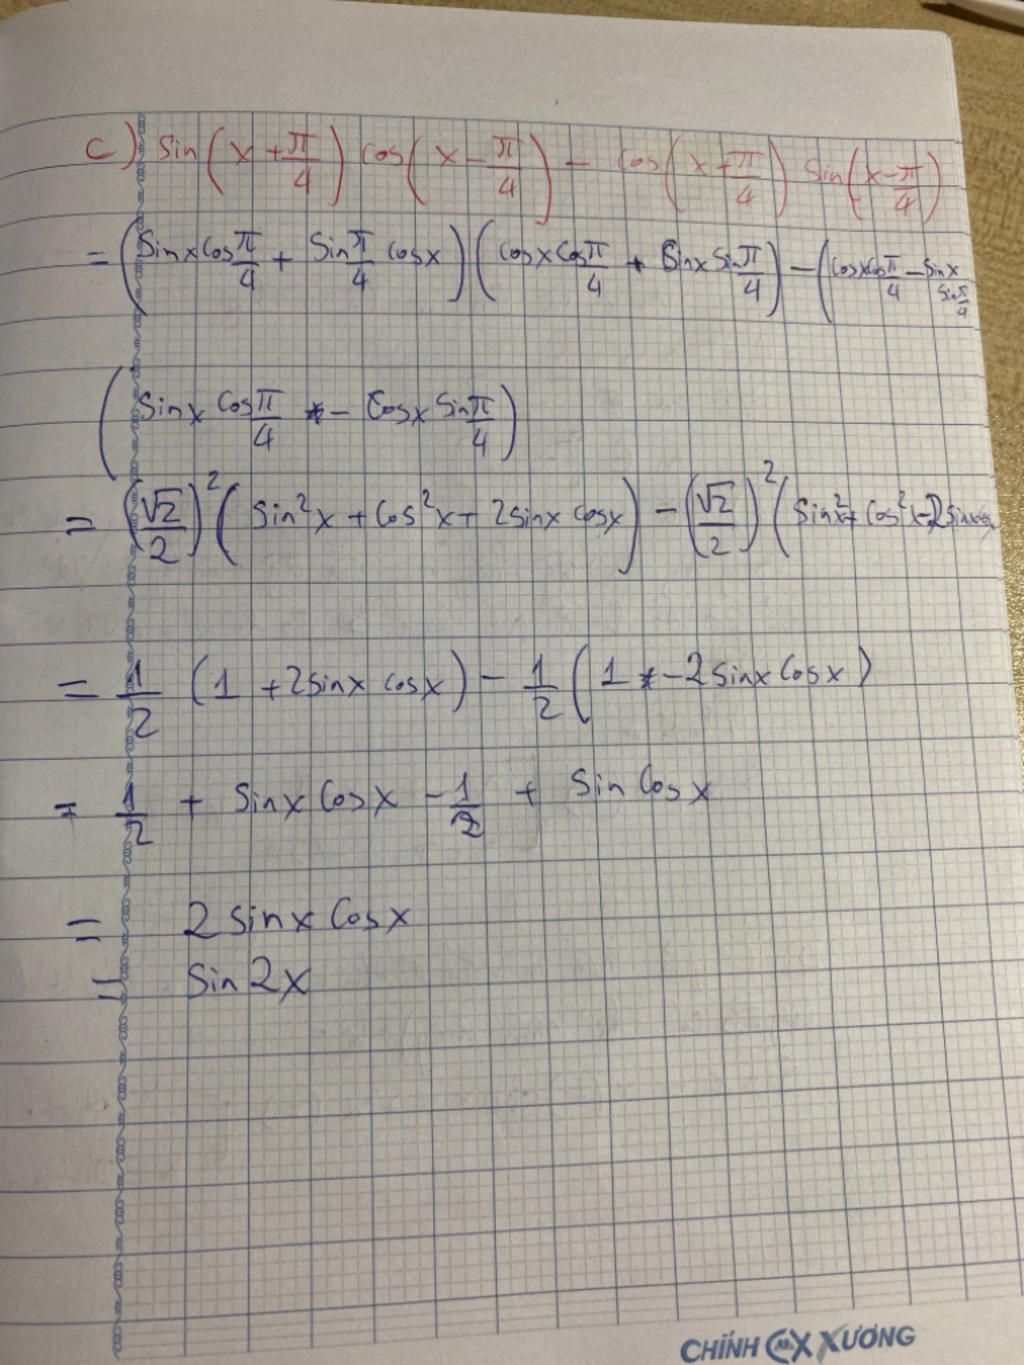 c) sin(x + π/4) cos(x - π/4) - cos(x + π/4) sin(x - π/4)
= (sinx cos π/4 + sin π/4 cosx)(cosx cos π/4 + sinx sin π/4) - (cosx cos π/4 - sinx sin π/4
(sinx cos π/4 - cosx sin π/4)
= (√2/2)²(sin²x + cos²x + 2sinx cosx) - (√2/2)²(sin²x + cos²x - 2sinxcosx
= 1/2 (1 + 2sinx cosx) - 1/2 (1 - 2sinx cosx)
= 1/2 + sinx cosx - 1/2 + sin cosx
= 2 sinx cosx
= sin 2x
CHÍNH XƯƠNG